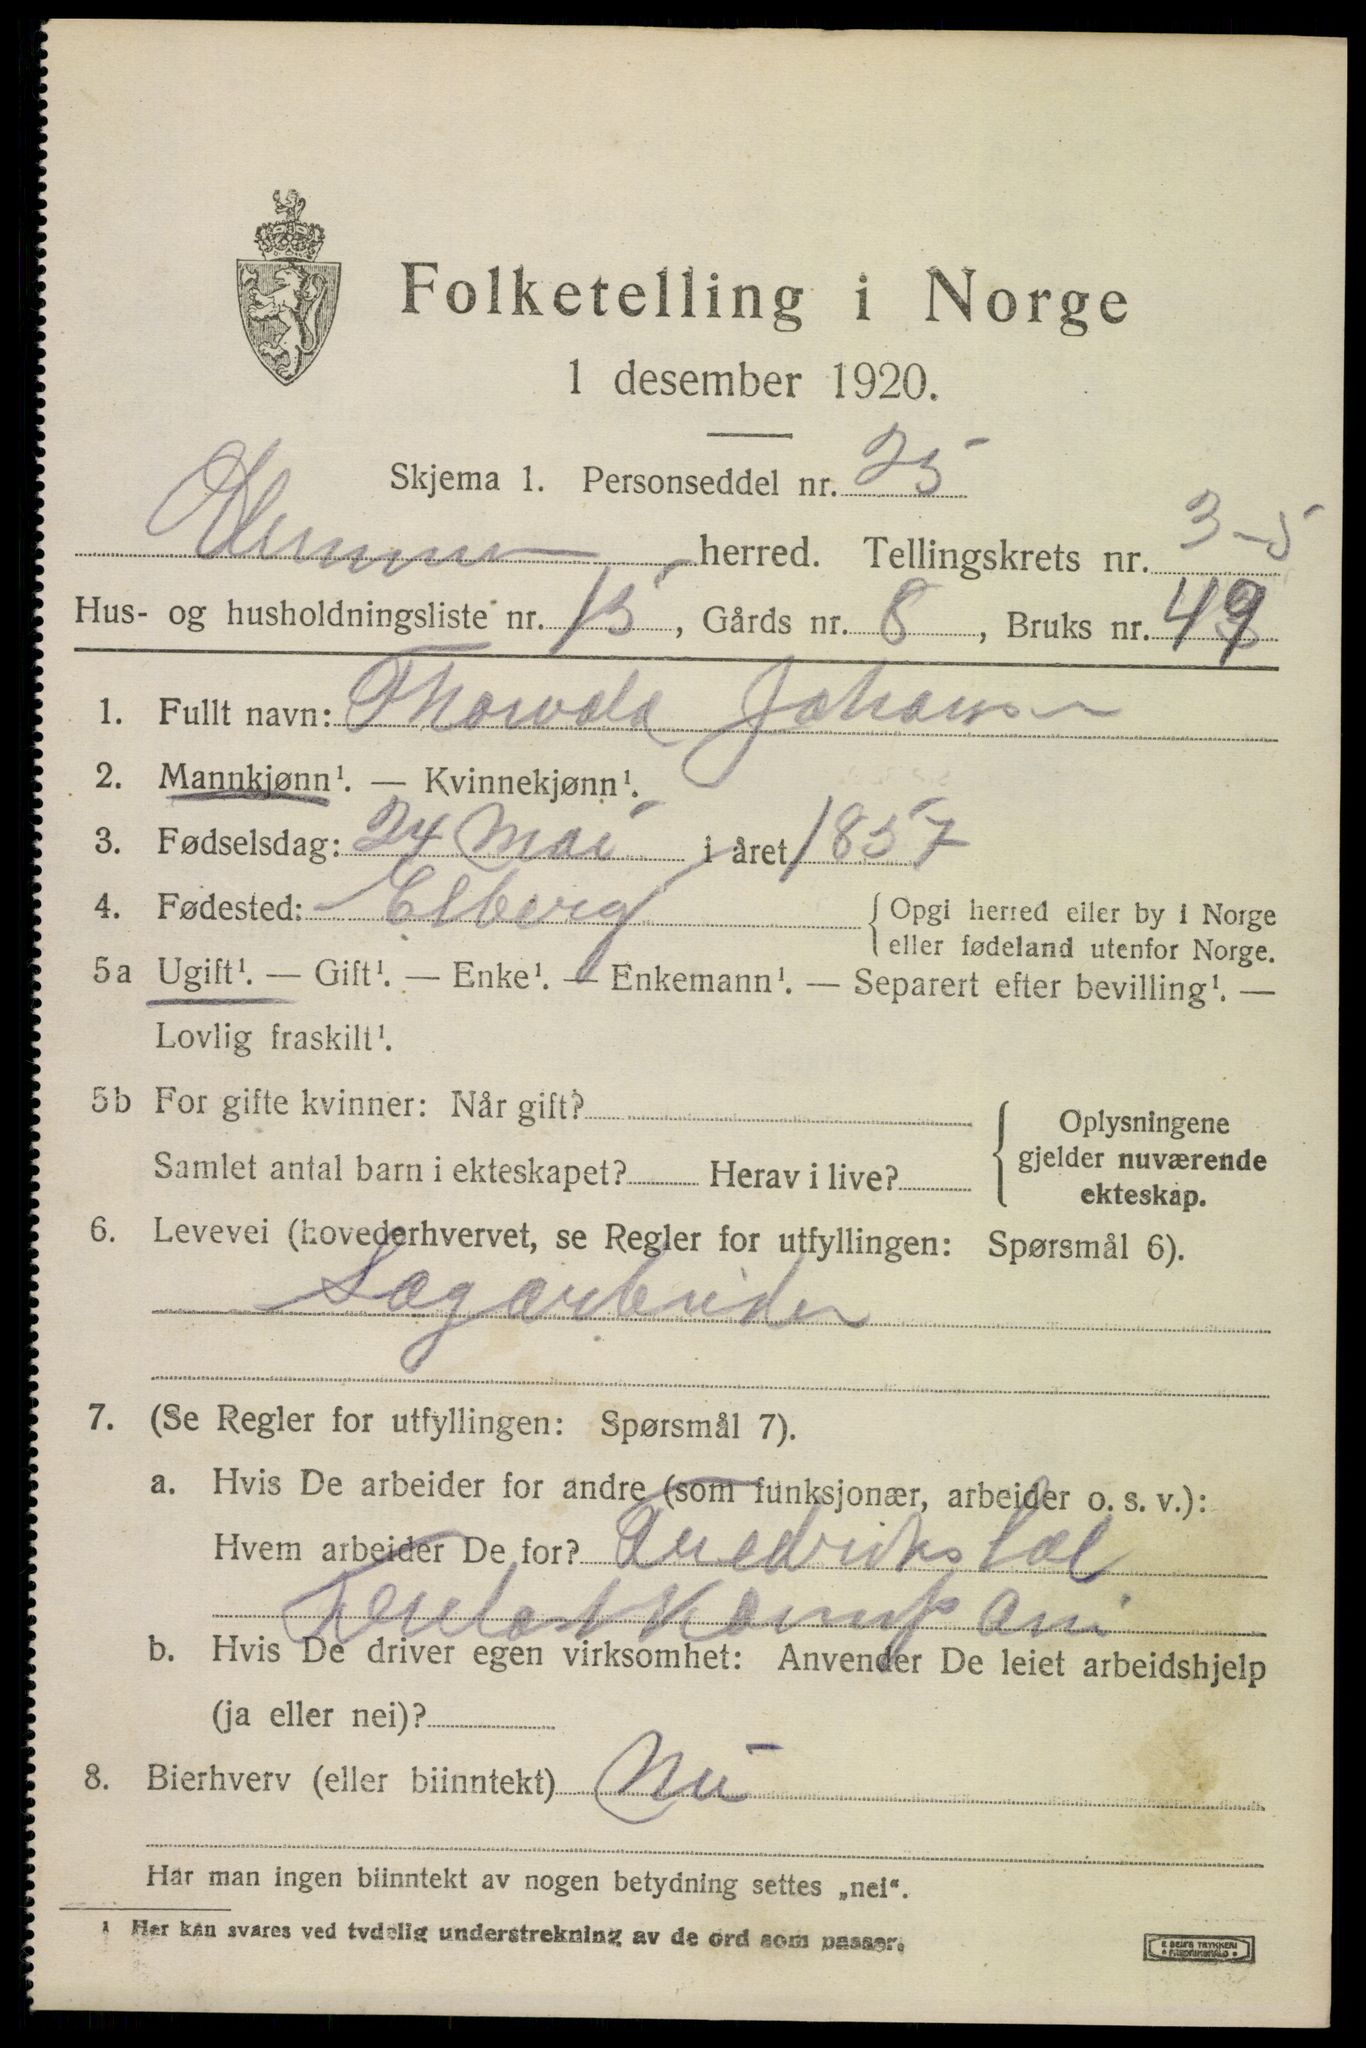 Folketelling i Norge
1 desember 1920.
Skjema 1. Personseddel nr. 25
Glemmen herred. Tellingskrets nr. 3-5
Hus- og husholdningsliste nr. 15, Gårds nr. 8, Bruks nr. 49
1. Fullt navn: Thorvald Johansen
2. Mannkjønn¹. — Kvinnekjønn¹.
3. Fødselsdag: 24 Mai i året 1857
4. Fødested: Elberg {Opgi herred eller by i Norge
eller fødeland utenfor Norge.
5a Ugift¹. — Gift¹. — Enke¹. — Enkemann¹. — Separert efter bevilling¹. —
Lovlig fraskilt¹.
5b For gifte kvinner: Når gift?
Samlet antal barn i ekteskapet? Herav i live?
{Oplysningene
gjelder nuværende
ekteskap.
6. Levevei (hovederhvervet, se Regler for utfyllingen: Spørsmål 6).
Sagarbeider
7. (Se Regler for utfyllingen: Spørsmål 7).
a. Hvis De arbeider for andre (som funksjonær, arbeider o. s. v.):
Hvem arbeider De for? Fredrikstad
Trelast Kompani
b. Hvis De driver egen virksomhet: Anvender De leiet arbeidshjelp
(ja eller nei)?
8. Bierhverv (eller biinntekt) Nei
Har man ingen biinntekt av nogen betydning settes „nei“.
¹ Her kan svares ved tydelig understrekning av de ord som passer.